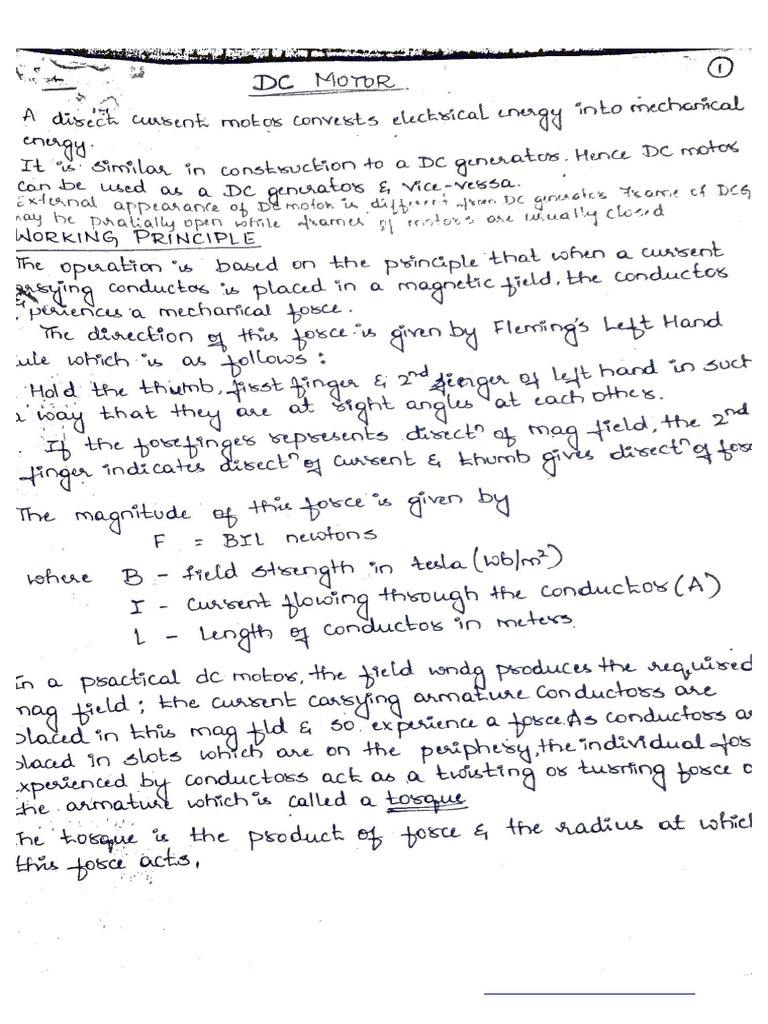 DC MOTOR
1
A direct current motor converts electrical energy into mechanical
energy.
It is similar in construction to a DC generator. Hence DC motor
can be used as a DC generator & vice-versa.
External appearance of DC motor is different from DC generator Frame of DCG
may be pratially open while frames of motors are usually closed
WORKING PRINCIPLE
The operation is based on the principle that when a current
rrying conductor is placed in a magnetic field, the conductor
periences a mechanical force.
The direction of this force is given by Fleming's Left Hand
ule which is as follows:
Hold the thumb, first finger & 2nd finger of left hand in such
a way that they are at right angles at each other.
If the forefinger represents directn of mag field, the 2nd
finger indicates directn of current & thumb gives directn of forc
The magnitude of this force is given by
F = BIL newtons
where B - field strength in tesla (wb/m²)
I - current flowing through the conductor (A)
l - length of conductor in meters.
In a practical dc motor, the field wndg produces the required
mag field; the current carrying armature conductors are
placed in this mag fld & so experience a force. As conductors a
placed in slots which are on the periphery, the individual for
experienced by conductors act as a twisting or turning force o
the armature which is called a torque
The torque is the product of force & the radius at which
this force acts.